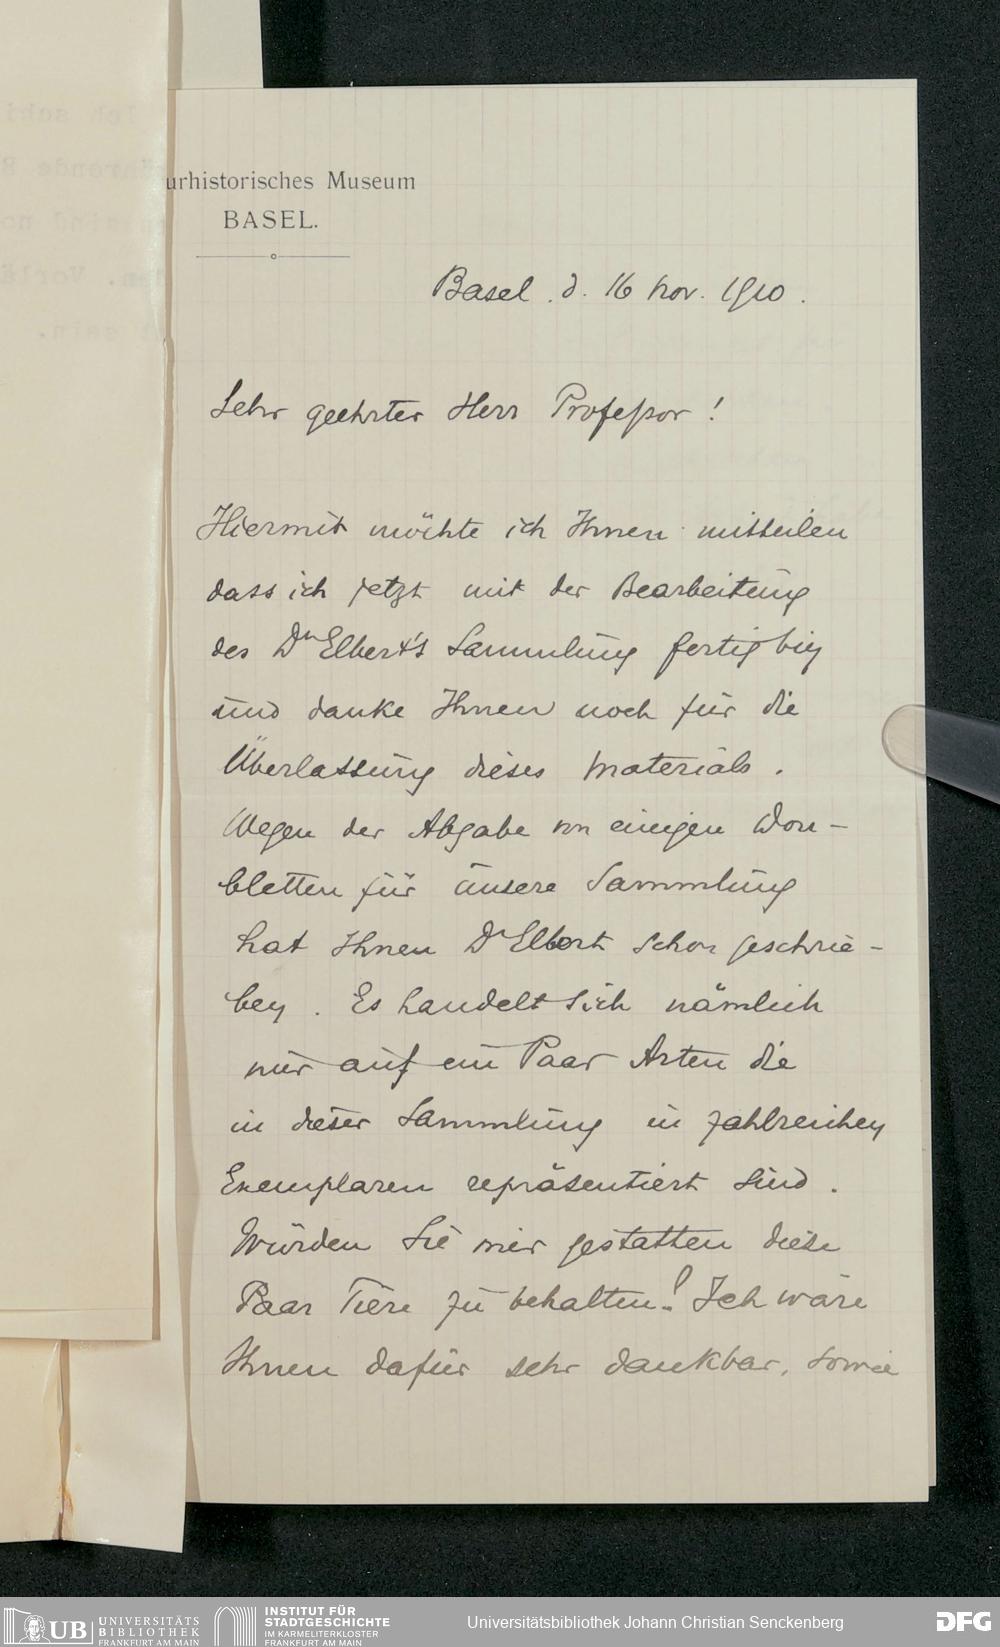 urhistorisches Museum
BASEL.
Basel . d. 16 Nov. 1910 .
Sehr geehrter Herr Professor !
Hiermit möchte ich Ihnen mittheilen
dass ich jetzt mit der Bearbeitung
des Dr Elbert's Sammlung fertig bin
und danke Ihnen noch für die
Überlassung dieses Materials .
Wegen der Abgabe von einigen Dou-
bletten für unsere Sammlung
hat Ihnen Dr Elbert schon geschrie-
ben . Es handelt sich nämlich
nur auf ein Paar Arten die
in dieser Sammlung in zahlreichen
Exemplaren repräsentiert sind .
Würden Sie mir gestatten diese
Paar Tiere zu behalten ? Ich wäre
Ihnen dafür sehr dankbar, sowie
UB UNIVERSITÄTS
BIBLIOTHEK
FRANKFURT AM MAIN
INSTITUT FÜR
STADTGESCHICHTE
IM KARMELITERKLOSTER
FRANKFURT AM MAIN
Universitätsbibliothek Johann Christian Senckenberg
DFG